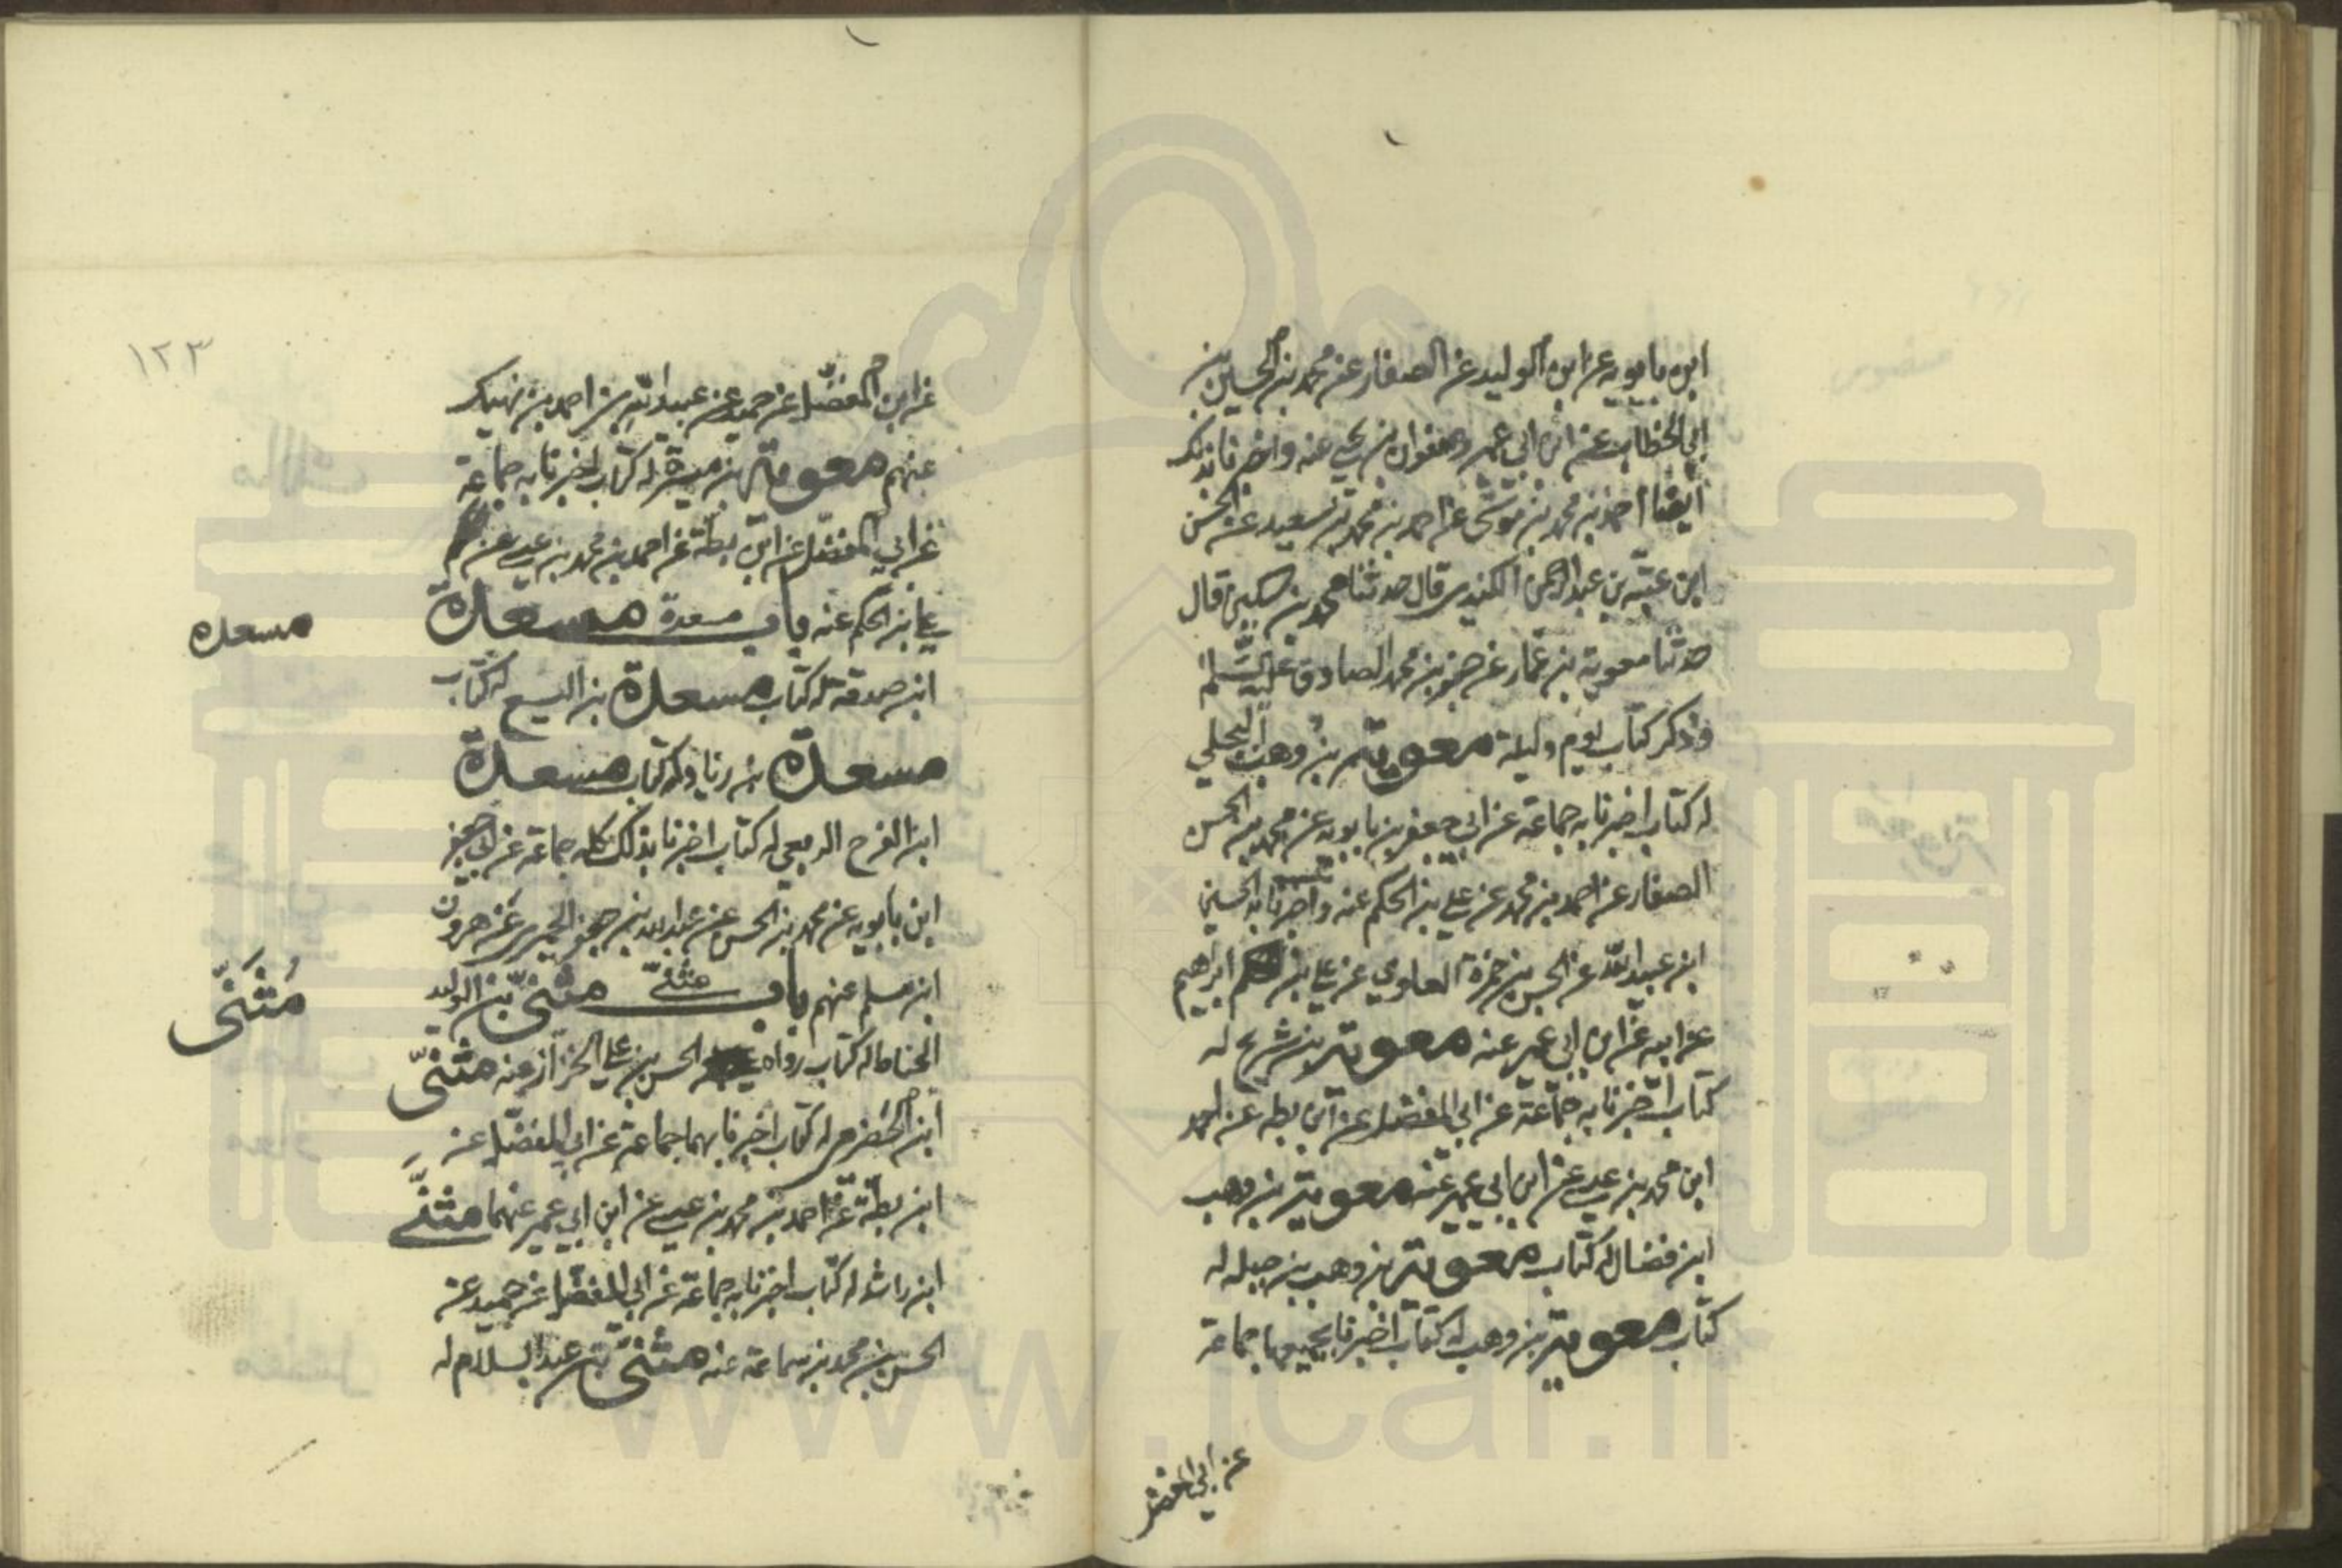 ابن بابويه عن ابن الوليد عن الصفار عن محمد بن الحسين بن
ابي الخطاب عن ابن ابي عمير وصفوان بن يحيى عنه واخبرنا بذلك
ايضا احمد بن محمد بن موسى عن احمد بن محمد بن سعيد عن الحسن
ابن عتبة بن عبد الرحمن الكندي قال حدثنا محمد بن سكين قال
حدثنا معوية بن عمار عن جعفر بن محمد الصادق عليه السلم
وذكر كتاب يوم وليلة معوية بن وهب البجلي
له كتاب اخبرنا به جماعة عن ابي جعفر بن بابويه عن محمد بن الحسن
الصفار عن احمد بن محمد عن علي بن الحكم عنه واخبرنا به الحسين
ابن عبيد الله عن الحسن بن حمزة العلوي عن علي بن ابراهيم
عن ابيه عن ابن ابي عمير عنه معوية بن شريح له
كتاب اخبرنا به جماعة عن ابي المفضل عن ابن بطه عن احمد
ابن محمد بن عيسى عن ابن ابي عمير عنه معوية بن وهب
ابن فضال له كتاب معوية بن وهب بن جبله له
كتاب معوية بن وهب له كتاب اخبرنا بجميعها جماعة
عن ابي المفضل
١٢٣
عن ابي المفضل عن حميد عن عبيد الله بن احمد بن نهيك
عنهم معوية بن ميسرة له كتاب اخبرنا به جماعة
عن ابي المفضل عن ابن بطة عن احمد بن محمد بن عيسى عن
علي بن الحكم عنه باب مسعدة مسعدة
مسعدة
ابن صدقة له كتاب مسعدة بن اليسع له كتاب
مسعدة بن زياد له كتاب مسعدة
ابن الفرج الربعي له كتاب اخبرنا بذلك كله جماعة عن ابي جعفر
ابن بابويه عن محمد بن الحسن عن عبد الله بن جعفر الحميري عن هرون
ابن مسلم عنهم باب مثنى مثنى بن الوليد
مُثَنَّى
الحناط له كتاب رواه الحسن بن علي الخزاز عنه مثنى
ابن الحضرمي له كتاب اخبرنا بهما جماعة عن ابي المفضل عن
ابن بطة عن احمد بن محمد بن عيسى عن ابن ابي عمير عنهما مثنى
ابن راشد له كتاب اخبرنا به جماعة عن ابي المفضل عن حميد عن
الحسن بن محمد بن سماعة عنه مثنى بن عبد السلام له
www.icar.ir